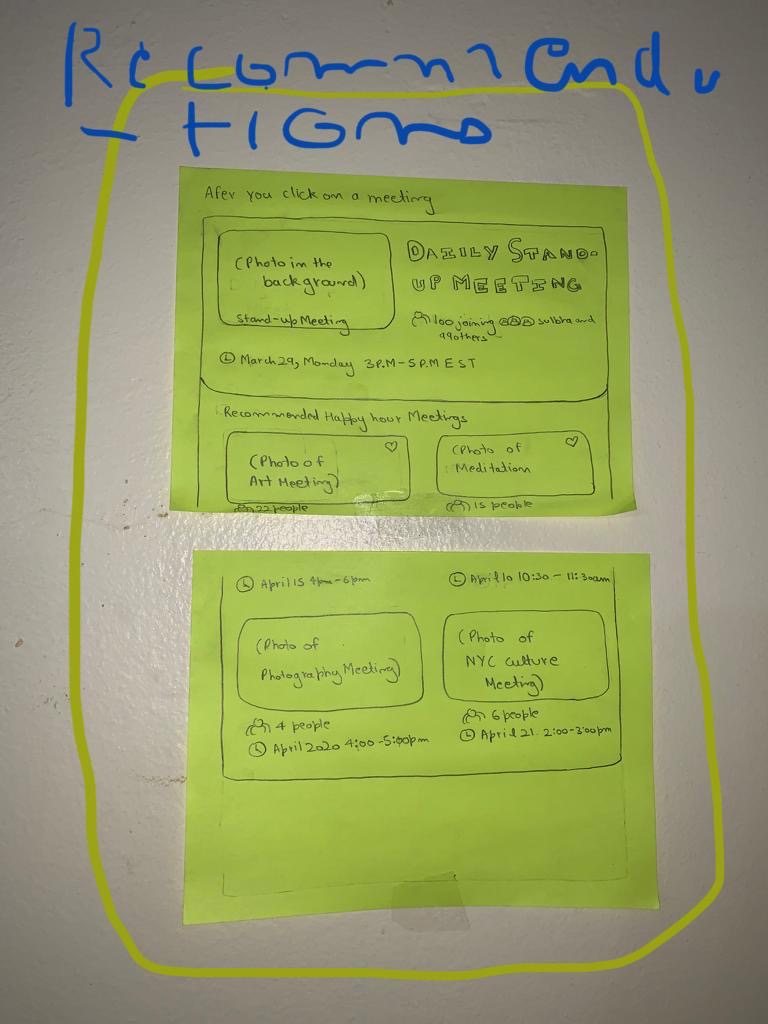 Recommenda
-tions
Afer you click on a meeting
(Photo in the
background)
Stand-up Meeting
DAIILY STAND-
UP MEETING
100 joining sulbha and
99others
March 29, Monday 3P.M-5P.M EST
Recommended Happy hour Meetings
(Photo of
Art Meeting)
22 people
(Photo of
Meditation
15 people
April 15 4pm-6pm
April 10 10:30 - 11:30am
(Photo of
Photography Meeting)
4 people
April 2020 4:00-5:00pm
(Photo of
NYC culture
Meeting)
6 people
April 21. 2:00-3:00pm